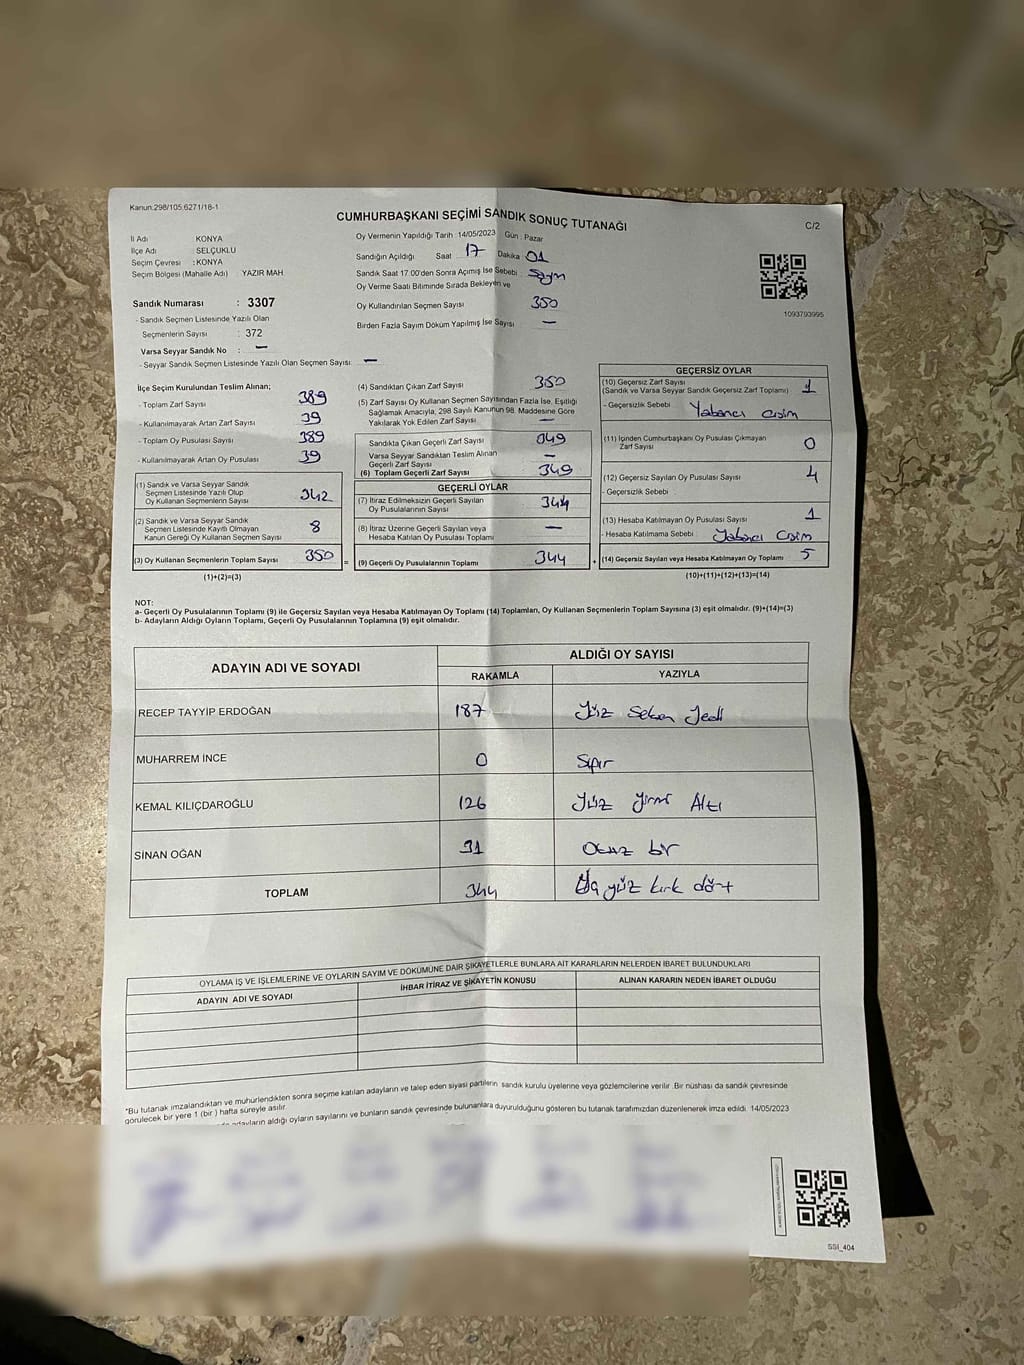 Kanun:298/105.6271/18-1
CUMHURBAŞKANI SEÇİMİ SANDIK SONUÇ TUTANAĞI
C/2
İl Adı : KONYA
İlçe Adı : SELÇUKLU
Seçim Çevresi : KONYA
Seçim Bölgesi (Mahalle Adı) YAZIR MAH
Oy Vermenin Yapıldığı Tarih :14/05/2023 Gün : Pazar
Sandığın Açıldığı Saat 17 Dakika 01
Sandık Saat 17.00'den Sonra Açımış İse Sebebi : Sayım
Oy Verme Saati Bitiminde Sırada Bekleyen ve
Oy Kullandırılan Seçmen Sayısı 350
Birden Fazla Sayım Döküm Yapılmış İse Sayısı —
1093793995
Sandık Numarası : 3307
- Sandık Seçmen Listesinde Yazılı Olan
Seçmenlerin Sayısı : 372
Varsa Seyyar Sandık No : —
- Seyyar Sandık Seçmen Listesinde Yazılı Olan Seçmen Sayısı —
İlçe Seçim Kurulundan Teslim Alınan;
- Toplam Zarf Sayısı 389
- Kullanılmayarak Artan Zarf Sayısı 39
- Toplam Oy Pusulası Sayısı 389
- Kullanılmayarak Artan Oy Pusulası 39
(1) Sandık ve Varsa Seyyar Sandık
Seçmen Listesinde Yazılı Olup
Oy Kullanan Seçmenlerin Sayısı 342
(2) Sandık ve Varsa Seyyar Sandık
Seçmen Listesinde Kayıtlı Olmayan
Kanun Gereği Oy Kullanan Seçmen Sayısı 8
(3) Oy Kullanan Seçmenlerin Toplam Sayısı 350 =
(1)+(2)=(3)
(4) Sandıktan Çıkan Zarf Sayısı 350
(5) Zarf Sayısı Oy Kullanan Seçmen Sayısından Fazla İse, Eşitliği
Sağlamak Amacıyla, 298 Sayılı Kanunun 98. Maddesine Göre
Yakılarak Yok Edilen Zarf Sayısı —
Sandıkta Çıkan Geçerli Zarf Sayısı 349
Varsa Seyyar Sandıktan Teslim Alınan
Geçerli Zarf Sayısı —
(6) Toplam Geçerli Zarf Sayısı 349
GEÇERLİ OYLAR
(7) İtiraz Edilmeksizin Geçerli Sayılan
Oy Pusulalarının Sayısı 344
(8) İtiraz Üzerine Geçerli Sayılan veya
Hesaba Katılan Oy Pusulası Toplamı —
(9) Geçerli Oy Pusulalarının Toplamı 344 +
GEÇERSİZ OYLAR
(10) Geçersiz Zarf Sayısı
(Sandık ve Varsa Seyyar Sandık Geçersiz Zarf Toplamı) 1
- Geçersizlik Sebebi : Yabancı cisim
(11) İçinden Cumhurbaşkanı Oy Pusulası Çıkmayan
Zarf Sayısı 0
(12) Geçersiz Sayılan Oy Pusulası Sayısı 4
- Geçersizlik Sebebi :
(13) Hesaba Katılmayan Oy Pusulası Sayısı 1
- Hesaba Katılmama Sebebi : Yabancı Cisim
(14) Geçersiz Sayılan veya Hesaba Katılmayan Oy Toplamı 5
(10)+(11)+(12)+(13)=(14)
NOT:
a- Geçerli Oy Pusulalarının Toplamı (9) ile Geçersiz Sayılan veya Hesaba Katılmayan Oy Toplamı (14) Toplamları, Oy Kullanan Seçmenlerin Toplam Sayısına (3) eşit olmalıdır. (9)+(14)=(3)
b- Adayların Aldığı Oyların Toplamı, Geçerli Oy Pusulalarının Toplamına (9) eşit olmalıdır.
ADAYIN ADI VE SOYADI
ALDIĞI OY SAYISI
RAKAMLA YAZIYLA
RECEP TAYYİP ERDOĞAN 187 Yüz Seksen Yedi
MUHARREM İNCE 0 Sıfır
KEMAL KILIÇDAROĞLU 126 Yüz Yirmi Altı
SİNAN OĞAN 31 Otuz bir
TOPLAM 344 Üç yüz kırk dört
OYLAMA İŞ VE İŞLEMLERİNE VE OYLARIN SAYIM VE DÖKÜMÜNE DAİR ŞİKAYETLERLE BUNLARA AİT KARARLARIN NELERDEN İBARET BULUNDUKLARI
ADAYIN ADI VE SOYADI İHBAR İTİRAZ VE ŞİKAYETİN KONUSU ALINAN KARARIN NEDEN İBARET OLDUĞU
*Bu tutanak imzalandıktan ve mühürlendikten sonra seçime katılan adayların ve talep eden siyasi partilerin sandık kurulu üyelerine veya gözlemcilerine verilir .Bir nüshası da sandık çevresinde
görülecek bir yere 1 (bir ) hafta süreyle asılır.
adayların aldığı oyların sayılarını ve bunların sandık çevresinde bulunanlara duyurulduğunu gösteren bu tutanak tarafımızdan düzenlenerek imza edildi. 14/05/2023
SSI_404